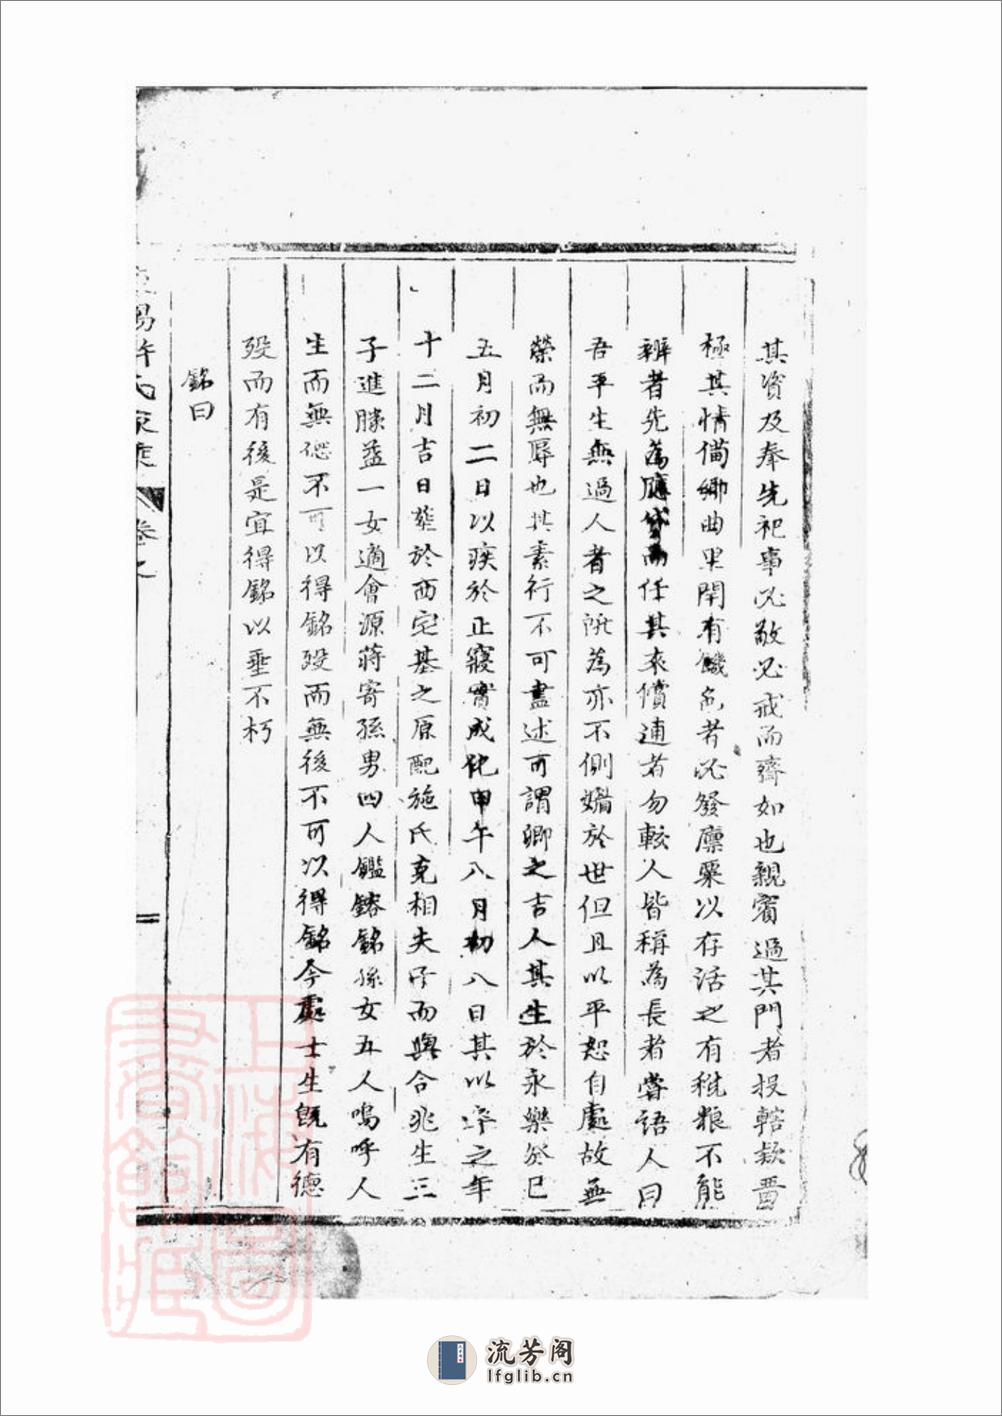 其資及奉先祀事必敬必戒而齊如也親賓過其門者投轄欵畱
極其情備鄉曲里閈有饑色者必發廪粟以存活之有稅粮不能
辦者先為應貸而任其來償逋者勿較人皆稱為長者嘗語人曰
吾平生無過人者之所為亦不側媚於世但且以平恕自處故無
榮而無辱也其素行不可盡述可謂鄉之吉人其生於永樂癸巳
五月初二日以疾於正寢實成化甲午八月初八日其以卒之年
十二月吉日塟於西宅基之原配施氏克相夫子而與合兆生三
子進滕益一女適會源蔣寄孫男四人鑑鏞銘孫女五人嗚呼人
生而無德不可以得銘歿而無後不可以得銘今處士生旣有德
歿而有後是宜得銘以垂不朽
銘曰
陽許氏家乘 卷之
上海圖書館藏
流芳阁
lfglib.cn